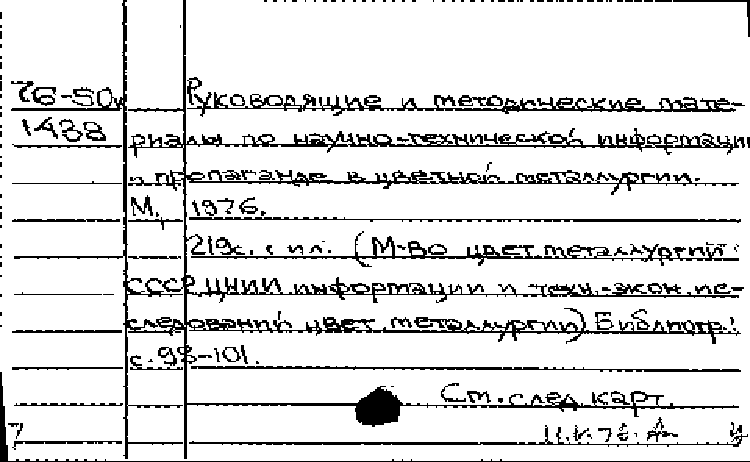 76-50 Руководящие и методические мате-
1488 риалы по научно-технической информации
и пропаганде в цветной металлургии.
М., 1976.
219с. с ил. (М-во цвет. металлургии
СССР. ЦНИИ информации и техн.-экон. ис-
следований цвет. металлургии) Библиогр.:
с. 98-101.
См. след. карт.
7